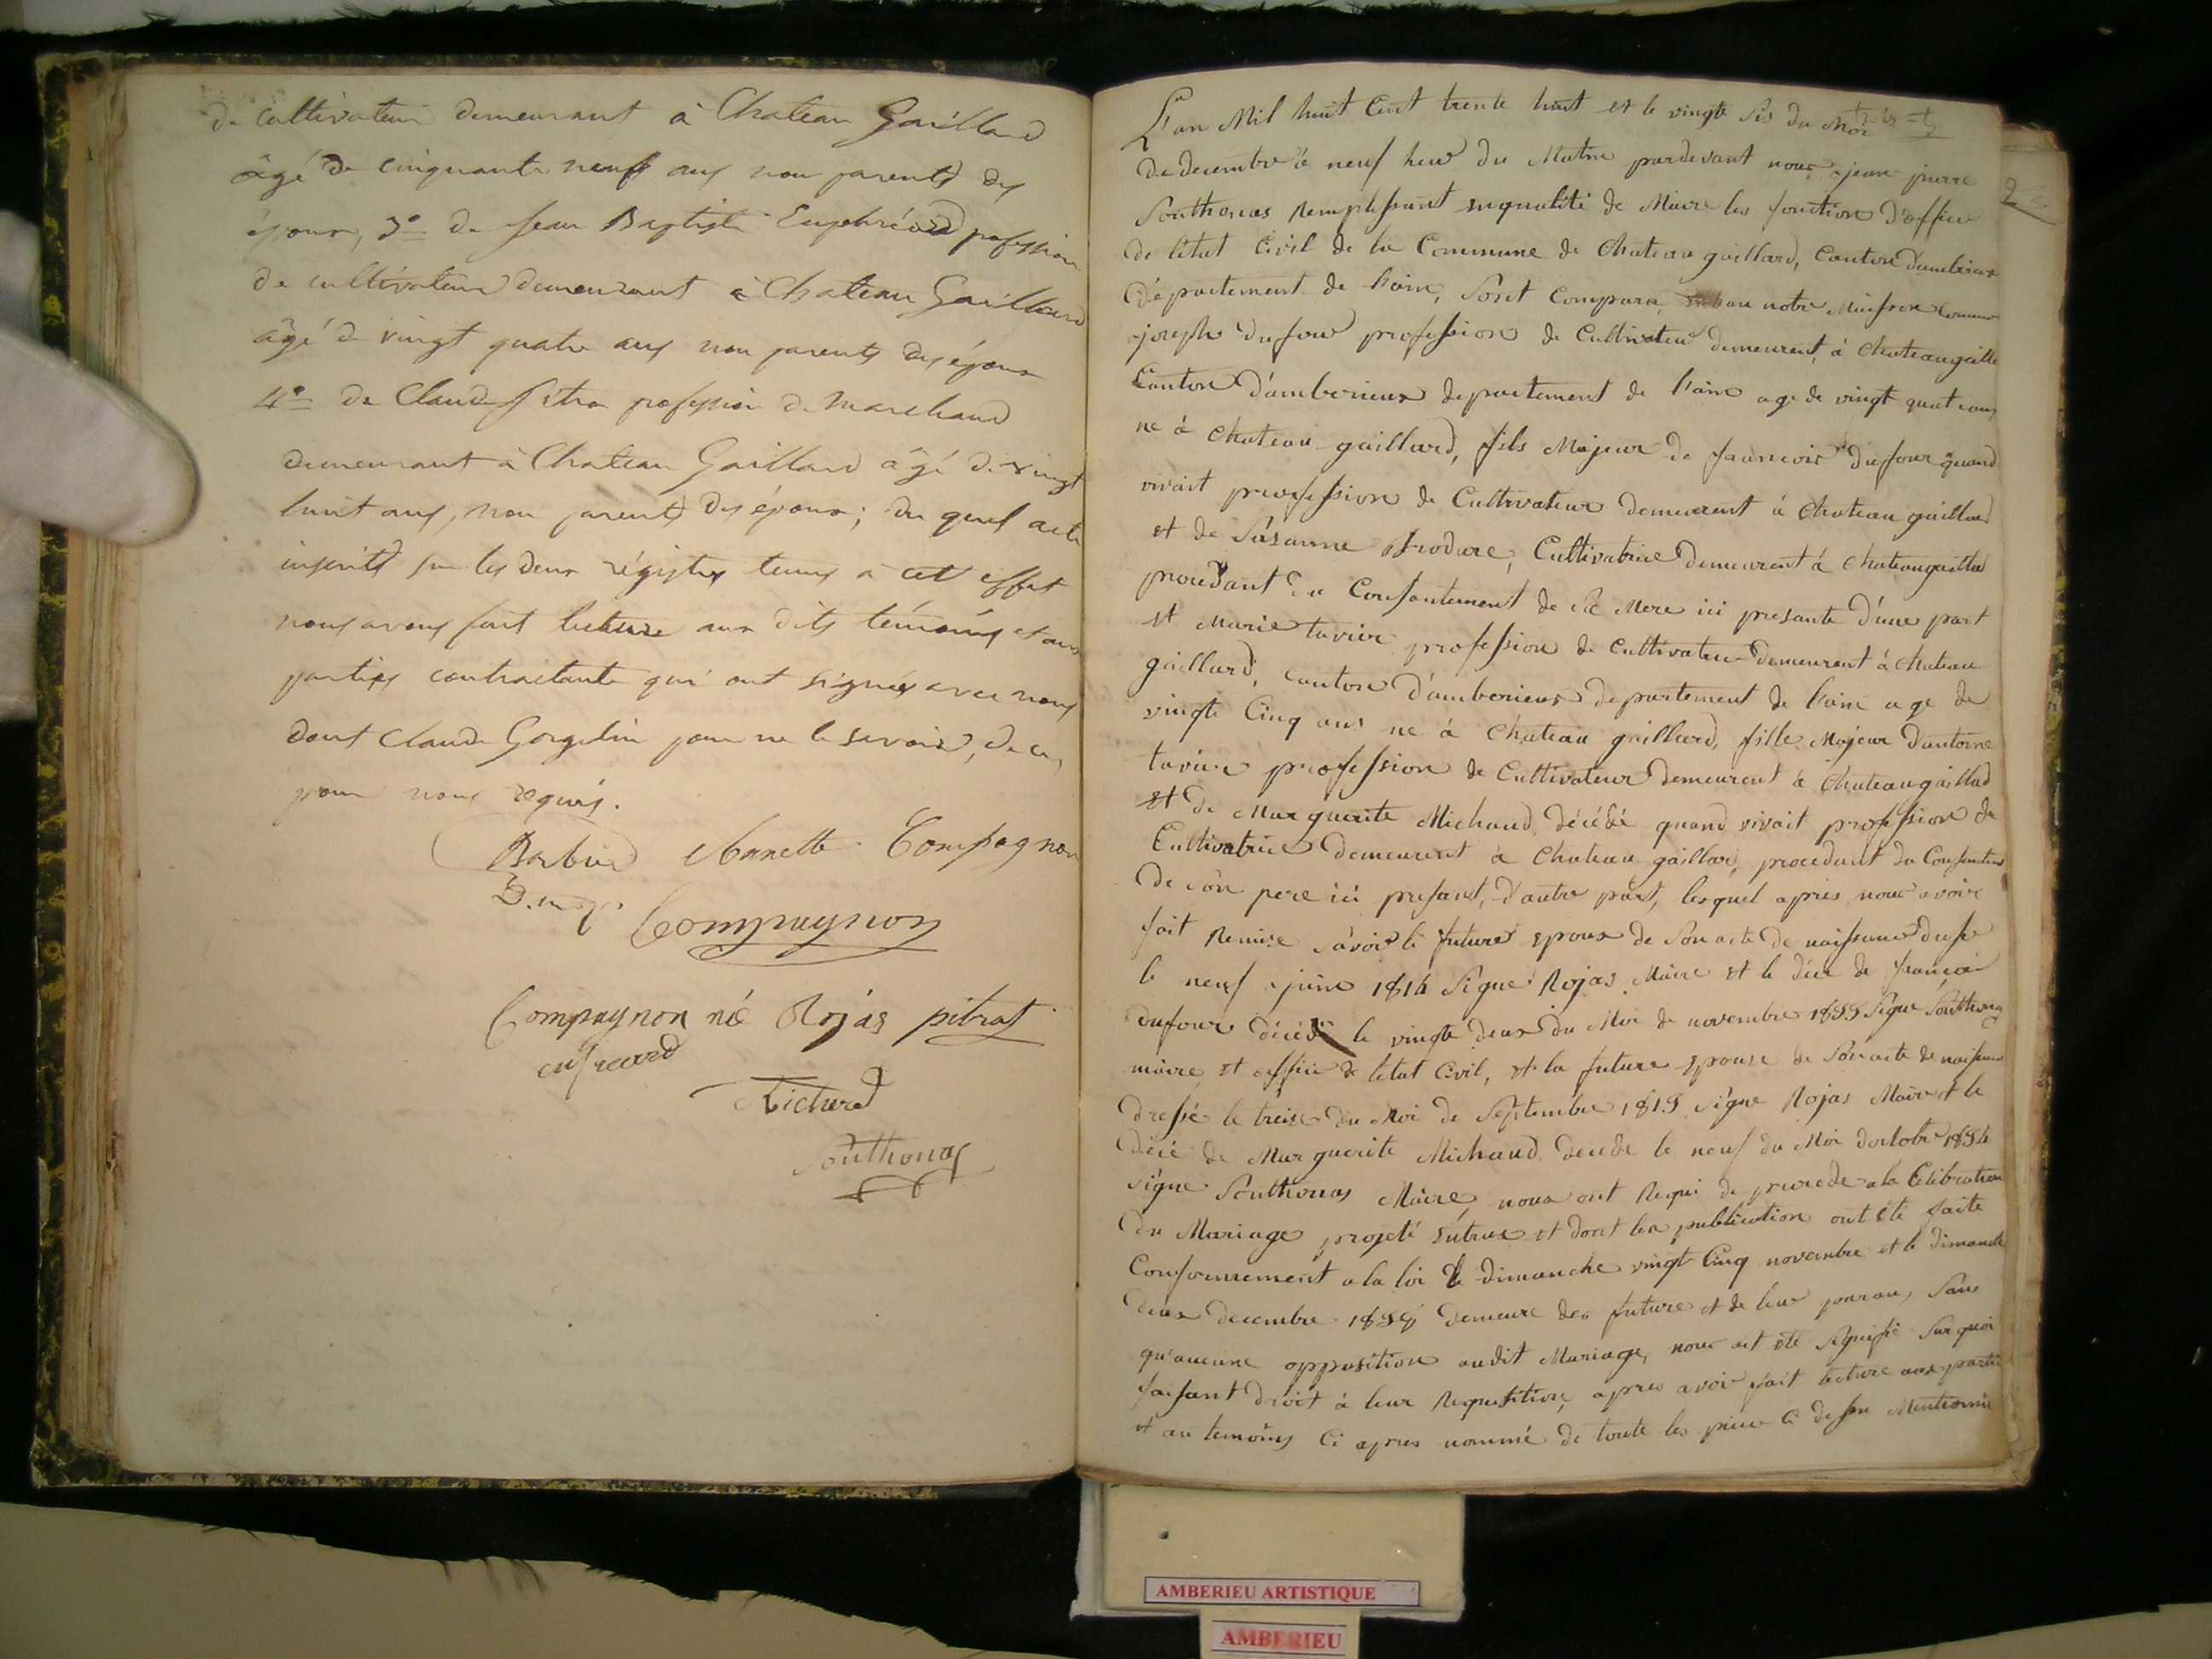 de cultivateur demeurant à Chateau Gaillard
âgé de cinquante neuf ans non parents des
époux, 3° de Jean Baptiste profession
de cultivateur demeurant à Chateau Gaillard
âgé de vingt quatre ans non parents des époux
4° de Claude profession de marchand
demeurant à Chateau Gaillard âgé de vingt
huit ans, non parents des époux; du quel acte
inscrits sur les deux régistres tenus à cet effet
nous avons fait lecture aux dits témoins et aux
parties contractante qui ont signés avec nous
dont Claude Gorgelin pour ne le savoir, de ce,
pour nous requis.
Barbier Nanette Compagnon
Compagnon
Compagnon né Rojas pitrat
Richerd
Southonas
L'an Mil huit Cent trente huit et le vingte sis du Moi
de decembre à neuf heur du Matin pardevant nous jean pierre
Southonas Remplissant enqualité de Maire les fonction d'officie
de l'état Civil de la Commune de Chateau gaillard, Canton d'amberieux
département de l'ain, Sont Comparu notre Maison Commune
joseph dufour profession de Cultivateur demeurent à Chateaugailla
Canton d'amberieux departement de l'ain age de vingt quat ans
ne à Chateau gaillard, fils Majeur de francois dufour quand
vivait profession de Cultivateur demeurent à Chateau gaillard
et de Susanne Cultivatrice demeurent à Chateaugaillad
procedant du Consantement de sa Mere ici presante d'une part
et Marie tavier profession de Cultivateur demeurent à Chateau
gaillard, canton d'amberieux departement de l'ain age de
vingte Cinq ans ne à Chateau gaillard, fille Majeur d'antoine
tavier profession de Cultivateur demeurent à Chateaugaillad
et de Marguerite Michaud décédé quand vivait profession de
Cultivatrice demeurent à Chateau gaillard, procedant du Consentem
de son pere ici presant, d'autre part, lesquel après nous avoire
fait Remise savoir le future epoux de Son acte de naissance
le neuf juin 1814 Signé Rojas Maire et le décé de françoi
dufour décédé le vingte deux du Moi de novembre 1833 Signe Southonas
maire et officie de l'état Civil, et la future Epouse de Son acte de naissance
dressé le treize du Moi de Septembre 1813 signe Rojas Maire et le
décé de Marguerite Michaud decede le neuf du Moi doctobre 1834
signe Southonas Maire, nous ont Requi de procede a la Célébration
du Mariage projeté entreux et dont les publication ont été faite
Conformement a la loi le dimanche vingt Cinq novembre et le dimanche
deux decembre 1838 demeure des future et de leur paran, Sans
qu'aucune opposition audit Mariage, nous ait été Signifié Sur quoi
faisant droit à leur Requisition, apres avoir fait lecture aux partie
et au temoins Ci apres nommé de toute les piece Ci dessu Mentionné
2
AMBERIEU ARTISTIQUE
AMBERIEU